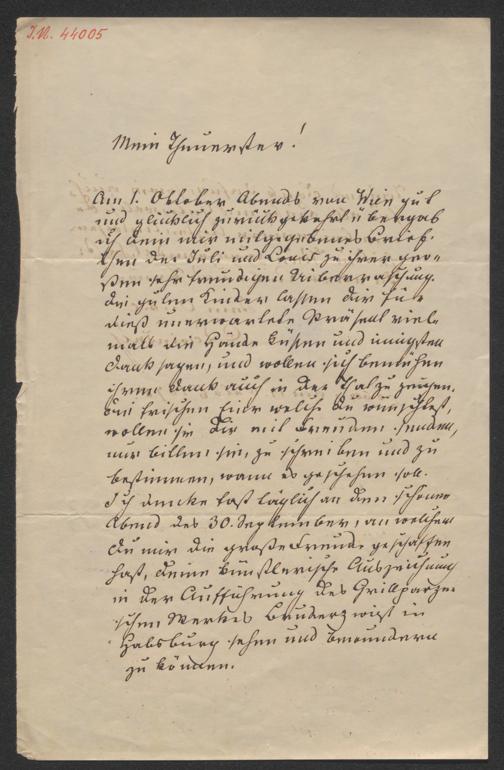 I.N. 44005
Mein Theuerster!
Am 1. Oktober Abends von Wien gut
und glücklich zurückgekehrt übergab
ich dein mir mitgegebenes Brief-
chen der Juli und Louis zu ihrer gro-
ßen sehr freudigen Uiberraschung.
Die guten Kinder lassen Dir für
dieß unerwartete Präsent viel-
mals die Hände küßen und innigsten
Dank sagen, und wollen sich bemühen
ihren Dank auch in der That zu zeigen.
Die frischen Eier welche du wünschest,
wollen sie Dir mit Freuden senden,
nur bitten sie, zu schreiben und zu
bestimmen, wann es geschehen soll.
Ich denke fast täglich an den schönen
Abend des 30. September, an welchem
du mir die große Freude geschaffen
hast, deine künstlerische Auszeichnung
in der Aufführung des Grillparzer-
schen Werkes Bruderzwist in
Habsburg sehen und bewundern
zu können.